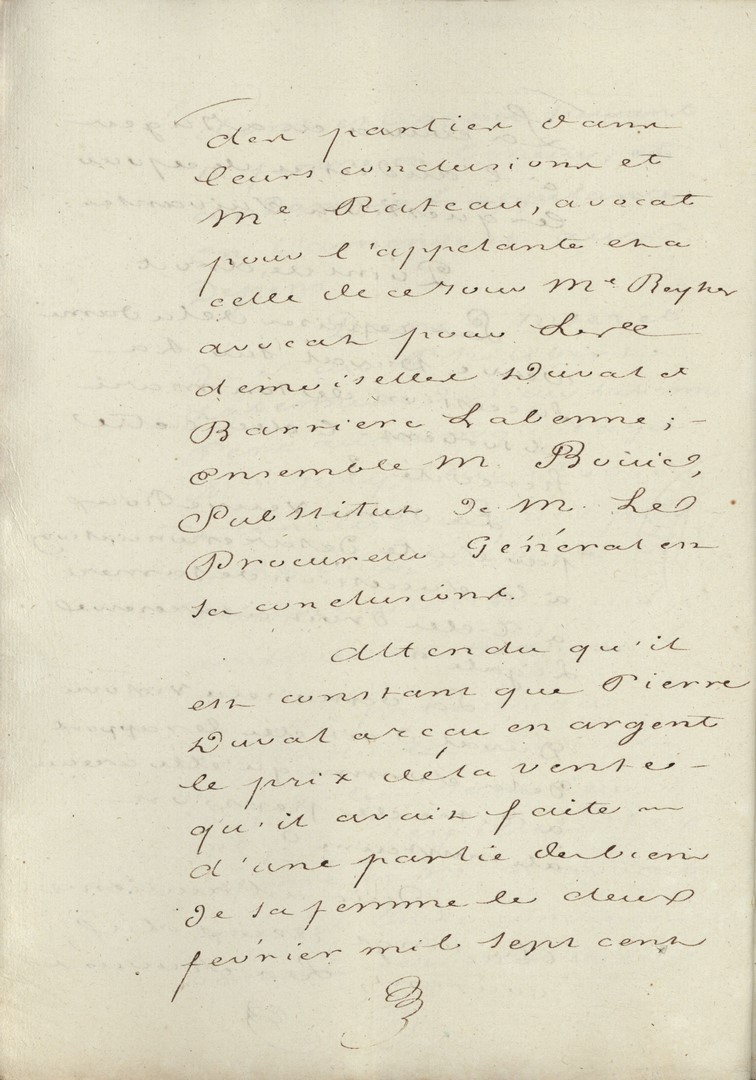 des parties dans
leurs conclusions et
Me Rateau, avocat
pour l'appelante et a
celle de ce jour Me Reyher
avocat pour Les
demoiselles Duval et
Barriere Labenne; -
ensemble M. Bouie,
Substitut de M. Le
Procureur Général en
sa conclusions.
Attendu qu'il
est constant que Pierre
Duval a reçu en argent
le prix déla vente -
qu'il avait faite
d'une partie des biens
de sa femme le deux
février mil sept cent